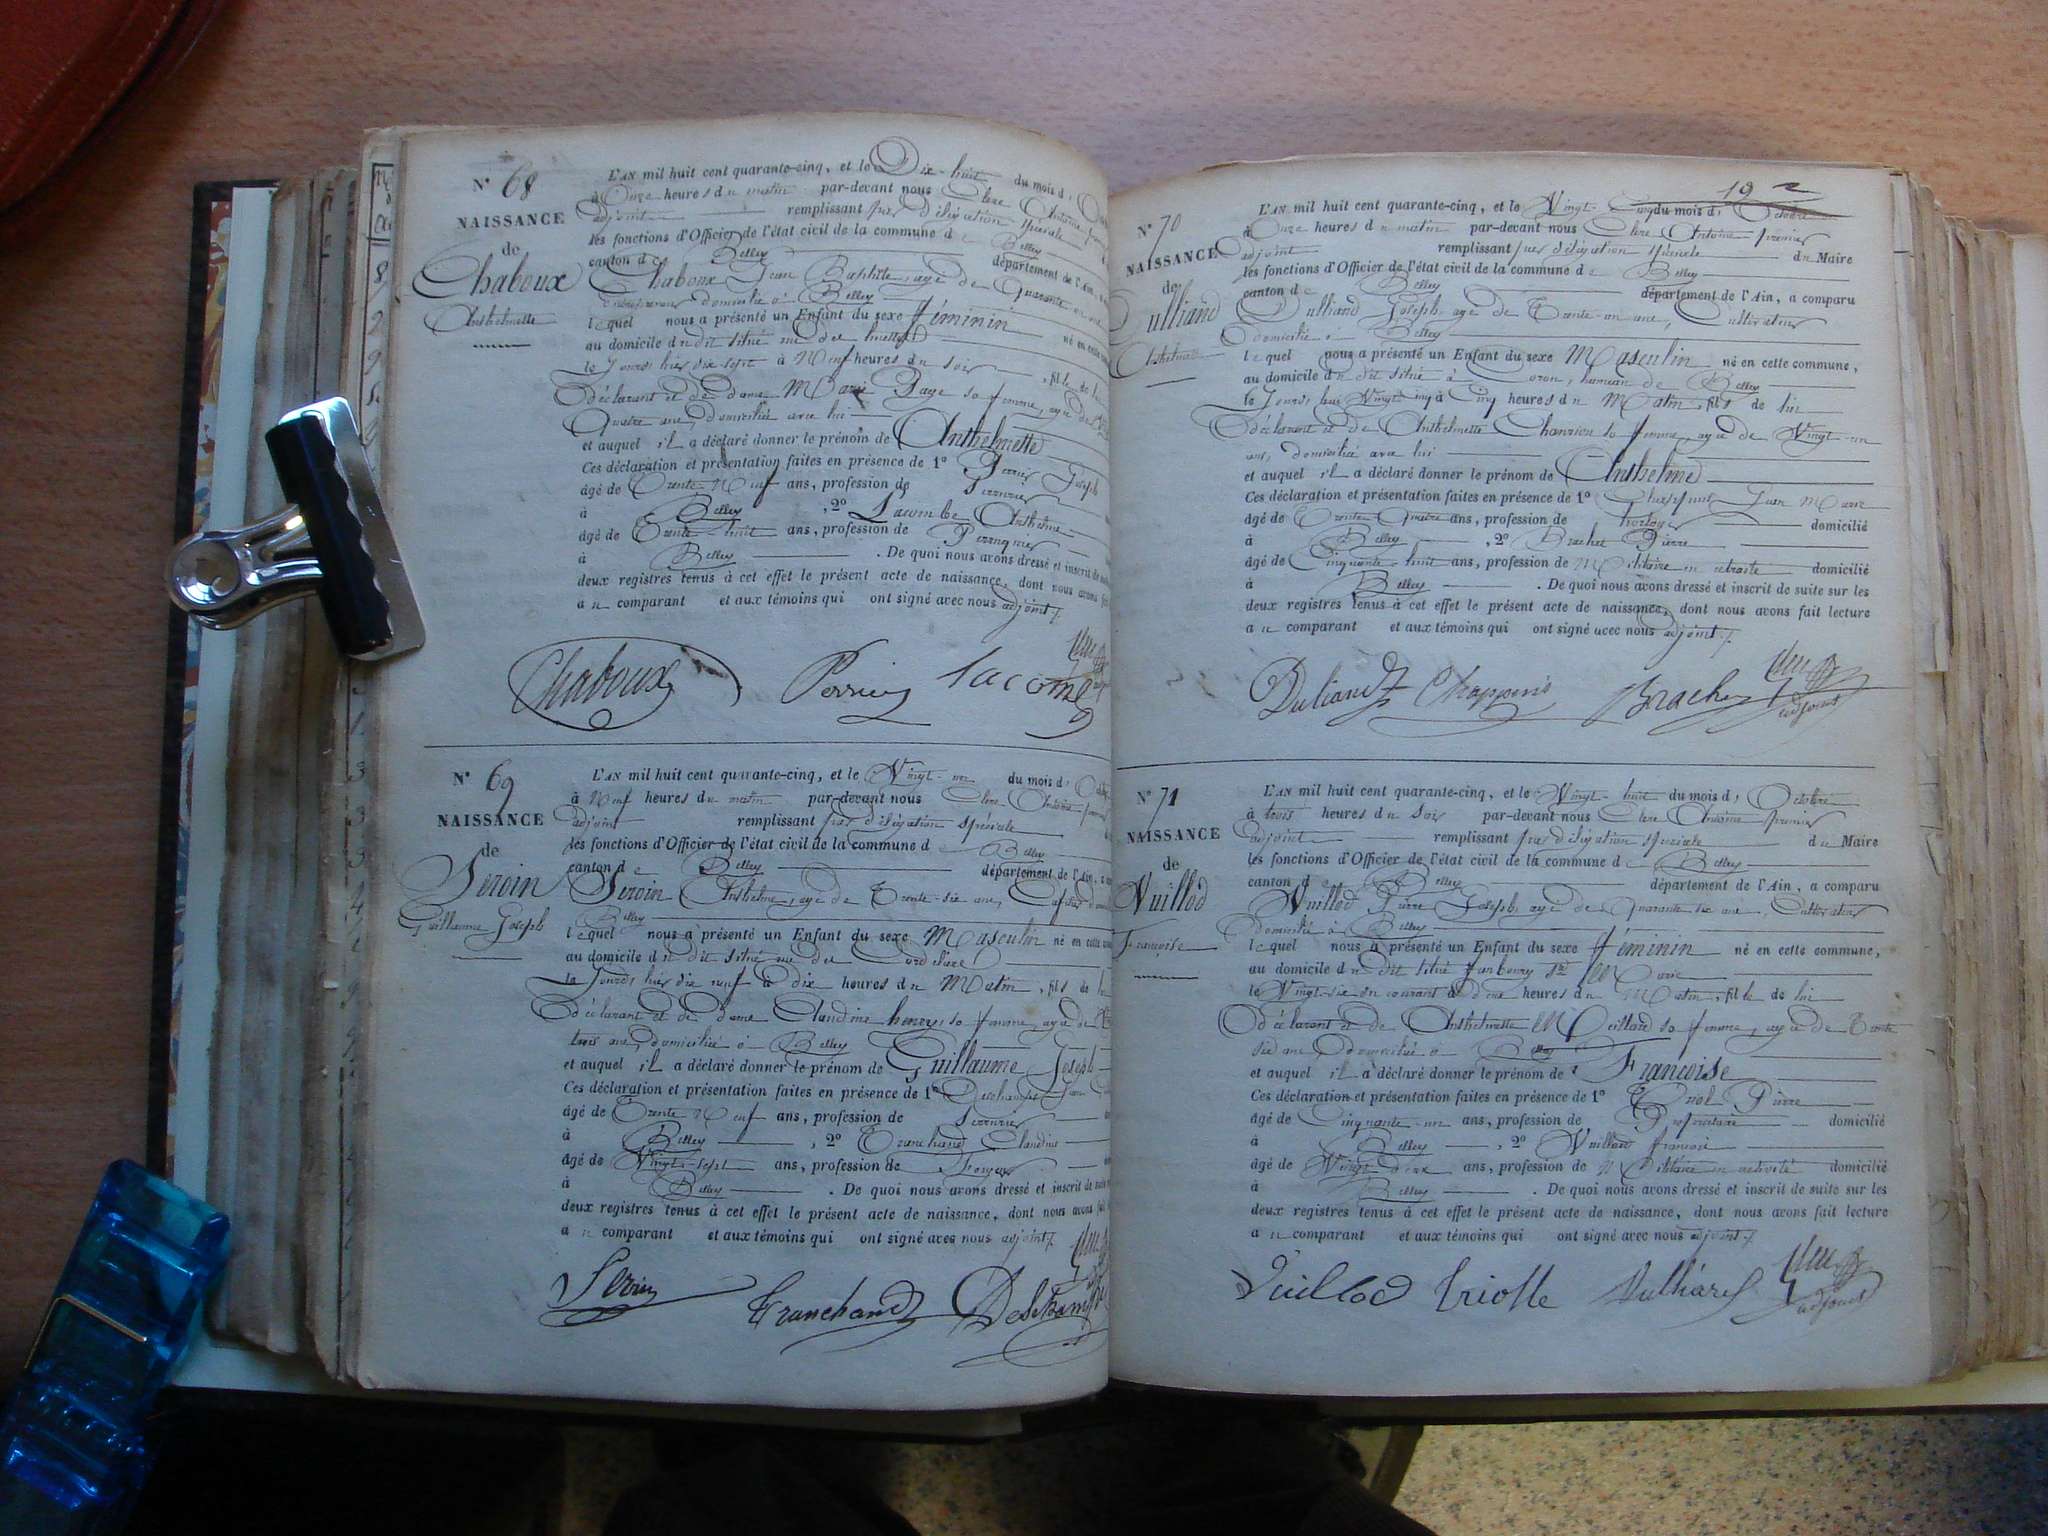 N° 68
NAISSANCE
de
Chaboux
Anthelmette
L'AN mil huit cent quarante-cinq, et le Dix-huit du mois d'
à Onze heures du matin par-devant nous Clerc Antoine
adjoint remplissant par délégation spéciale
les fonctions d'Officier de l'état civil de la commune de Belley
canton de Belley département de l'Ain,
Chaboux Jean Baptiste, agé de Quarante
domicilié à Belley
lequel nous a présenté un Enfant du sexe féminin né en cette
au domicile du dit situé rue des
le Jours hier dix-sept à Neuf heures du soir, fille de lui
Déclarant et de dame Marie Page sa femme, agée de
Quatre ans, domiciliée avec lui
et auquel il a déclaré donner le prénom de Anthelmette
Ces déclaration et présentation faites en présence de 1° Perrin Joseph
âgé de Trente Neuf ans, profession de Serrurier
à Belley, 2° Lacombe Anthelme
âgé de Trente-huit ans, profession de Perruquier
à Belley. De quoi nous avons dressé et inscrit de
deux registres tenus à cet effet le présent acte de naissance, dont nous avons fait
au comparant et aux témoins qui ont signé avec nous adjoint
Chaboux Perrin Lacombe
N° 69
NAISSANCE
de
Seroin
Guillaume Joseph
L'AN mil huit cent quarante-cinq, et le Vingt- du mois d'
à Neuf heures du matin par-devant nous Clerc Antoine
adjoint remplissant par délégation spéciale
les fonctions d'Officier de l'état civil de la commune de Belley
canton de Belley département de l'Ain,
Seroin Anthelme, agé de Trente-six ans,
Belley
lequel nous a présenté un Enfant du sexe Masculin né en cette
au domicile du dit situé rue des Cordeliers
le Jours hier dix neuf à dix heures du Matin, fils de
déclarant et de dame Claudine henry, sa femme, agée de
trois ans, domiciliée à Belley
et auquel il a déclaré donner le prénom de Guillaume Joseph
Ces déclaration et présentation faites en présence de 1° Deschamps
âgé de Trente Neuf ans, profession de Serrurier
à Belley, 2° Tranchand Claudius
âgé de Vingt-sept ans, profession de
à Belley. De quoi nous avons dressé et inscrit de
deux registres tenus à cet effet le présent acte de naissance, dont nous avons
au comparant et aux témoins qui ont signé avec nous adjoint
Tranchand Deschamps
19
N° 70
NAISSANCE
de
Dulliand
Anthelme
L'AN mil huit cent quarante-cinq, et le Vingt-Cinq du mois d' Octobre
à Onze heures du matin par-devant nous Clerc Antoine premier
adjoint remplissant par délégation spéciale du Maire
les fonctions d'Officier de l'état civil de la commune de Belley
canton de Belley département de l'Ain, a comparu
Dulliand Joseph agé de Trente-un ans, Cultivateur
domicilié à Belley
lequel nous a présenté un Enfant du sexe Masculin né en cette commune,
au domicile du dit situé à Coron, hameau de Belley
le Jours hui Vingt cinq à Cinq heures du Matin, fils de lui
déclarant et de Anthelmette Chanrion sa femme, agée de Vingt-un
ans, domiciliée avec lui
et auquel il a déclaré donner le prénom de Anthelme
Ces déclaration et présentation faites en présence de 1° Jean Marie
âgé de Trente Quatre ans, profession de horloger domicilié
à Belley, 2° Brachet Pierre
âgé de Cinquante-huit ans, profession de Militaire en retraite domicilié
à Belley. De quoi nous avons dressé et inscrit de suite sur les
deux registres tenus à cet effet le présent acte de naissance, dont nous avons fait lecture
au comparant et aux témoins qui ont signé avec nous adjoint
Duliand Brachet adjoint
N° 71
NAISSANCE
de
Vuillod
Françoise
L'AN mil huit cent quarante-cinq, et le Vingt-huit du mois d' Octobre
à trois heures du Soir par-devant nous Clerc Antoine premier
adjoint remplissant par délégation spéciale du Maire
les fonctions d'Officier de l'état civil de la commune de Belley
canton de Belley département de l'Ain, a comparu
Vuillod Pierre Joseph, agé de Quarante six ans, Cultivateur
domicilié à Belley
lequel nous a présenté un Enfant du sexe féminin né en cette commune,
au domicile du dit situé faubourg
le Vingt-six du courant à deux heures du Matin, fille de lui
déclarant et de Anthelmette Meillard sa femme, agée de Trente
six ans, domiciliée à Belley
et auquel il a déclaré donner le prénom de Françoise
Ces déclaration et présentation faites en présence de 1° Pierre
âgé de Cinquante-un ans, profession de Propriétaire domicilié
à Belley, 2° françois
âgé de Vingt deux ans, profession de Militaire en activité domicilié
à Belley. De quoi nous avons dressé et inscrit de suite sur les
deux registres tenus à cet effet le présent acte de naissance, dont nous avons fait lecture
au comparant et aux témoins qui ont signé avec nous adjoint
Vuillod adjoint